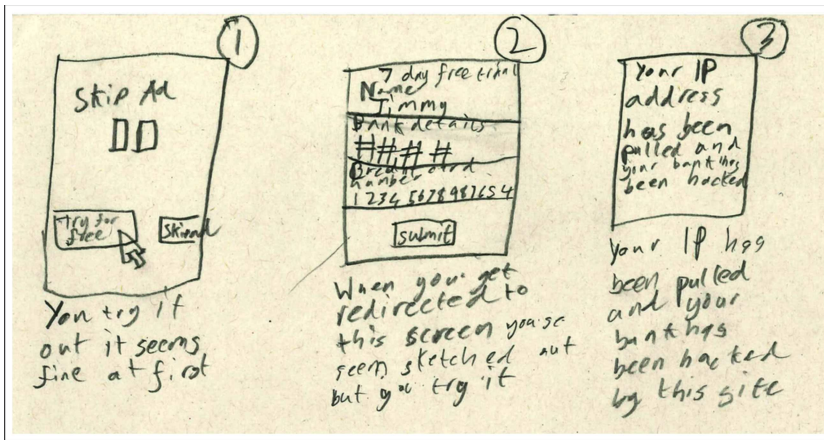 1
Skip Ad
Try for
free
Skip ad
You try it
out it seems
fine at first
2
7 day free trial
Name
Jimmy
Bank details
####
card
number
1234 5678987654
submit
When you get
redirected to
this screen you
seem sketched out
but you try it
3
Your IP
address
has been
pulled and
your bank has
been hacked
Your IP has
been pulled
and your
bank has
been hacked
by this site